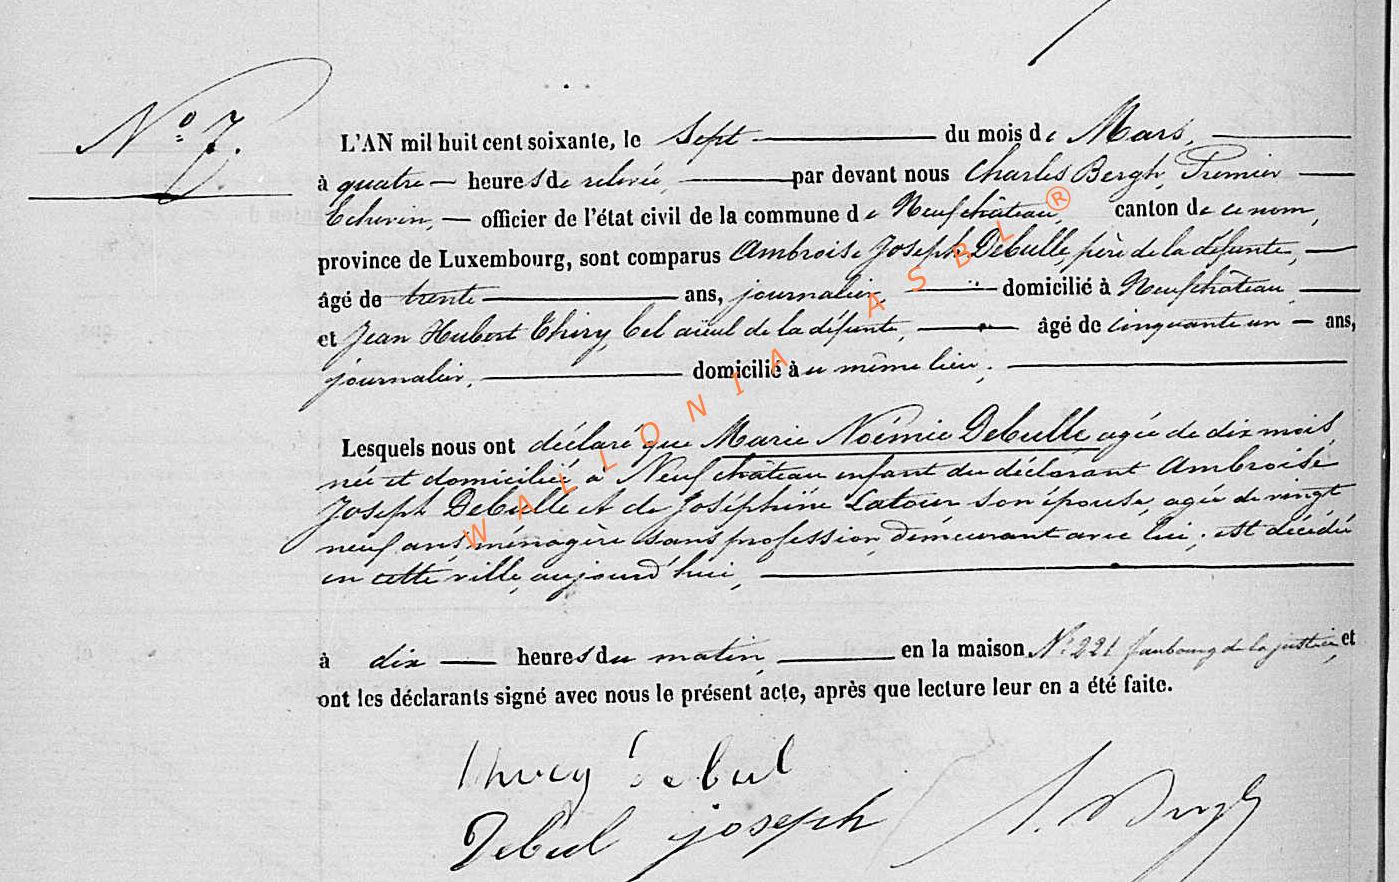 N° 7.
L'AN mil huit cent soixante, le sept du mois de Mars,
à quatre heures de relevée, par devant nous Charles Bergh, Premier
Echevin, officier de l'état civil de la commune de Neufchâteau, canton de ce nom,
province de Luxembourg, sont comparus Ambroise Joseph Debulle, père de la défunte,
âgé de trente ans, journalier, domicilié à Neufchâteau,
et Jean Hubert Thiry, bel aïeul de la défunte, âgé de cinquante un ans,
journalier, domicilié au même lieu;
Lesquels nous ont déclaré que Marie Noémie Debulle agée de dix mois,
née et domiciliée à Neufchâteau enfant du déclarant Ambroise
Joseph Debulle et de Joséphine Latour son épouse, agée de vingt
neuf ans ménagère sans profession, demeurant avec lui, est décédée
en cette ville, aujourd'hui,
à dix heures du matin, en la maison N° 221 faubourg de la justice, et
ont les déclarants signé avec nous le présent acte, après que lecture leur en a été faite.
Debul joseph
WALLONIA ASBL ®